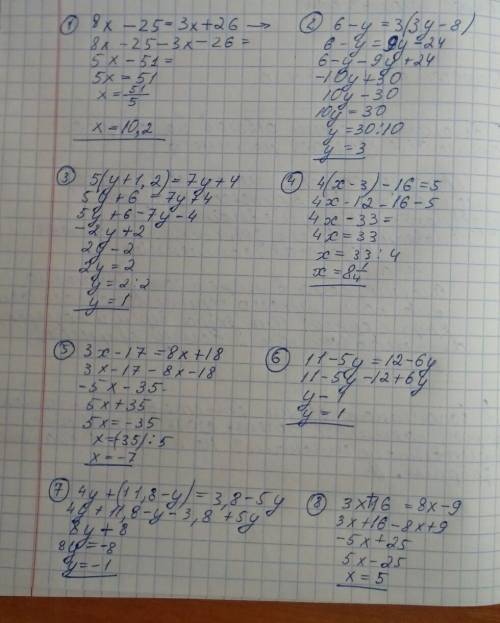 ① 8x - 25 = 3x + 26 →
8x - 25 - 3x - 26 =
5x - 51 =
5x = 51
x = 51/5
x = 10,2
② 6 - y = 3(3y - 8)
6 - y = 9y - 24
6 - y - 9y + 24
-10y + 30
10y - 30
10y = 30
y = 30:10
y = 3
③ 5(y + 1,2) = 7y + 4
5y + 6 = 7y + 4
5y + 6 - 7y - 4
-2y + 2
2y - 2
2y = 2
y = 2:2
y = 1
④ 4(x - 3) - 16 = 5
4x - 12 - 16 - 5
4x - 33 =
4x = 33
x = 33 : 4
x = 8 1/4
⑤ 3x - 17 = 8x + 18
3x - 17 - 8x - 18
-5x - 35
5x + 35
5x = -35
x = (35) : 5
x = -7
⑥ 11 - 5y = 12 - 6y
11 - 5y - 12 + 6y
y - 1
y = 1
⑦ 4y + (11,8 - y) = 3,8 - 5y
4y + 11,8 - y - 3,8 + 5y
8y + 8
8y = -8
y = -1
⑧ 3x + 16 = 8x - 9
3x + 16 - 8x + 9
-5x + 25
5x - 25
x = 5